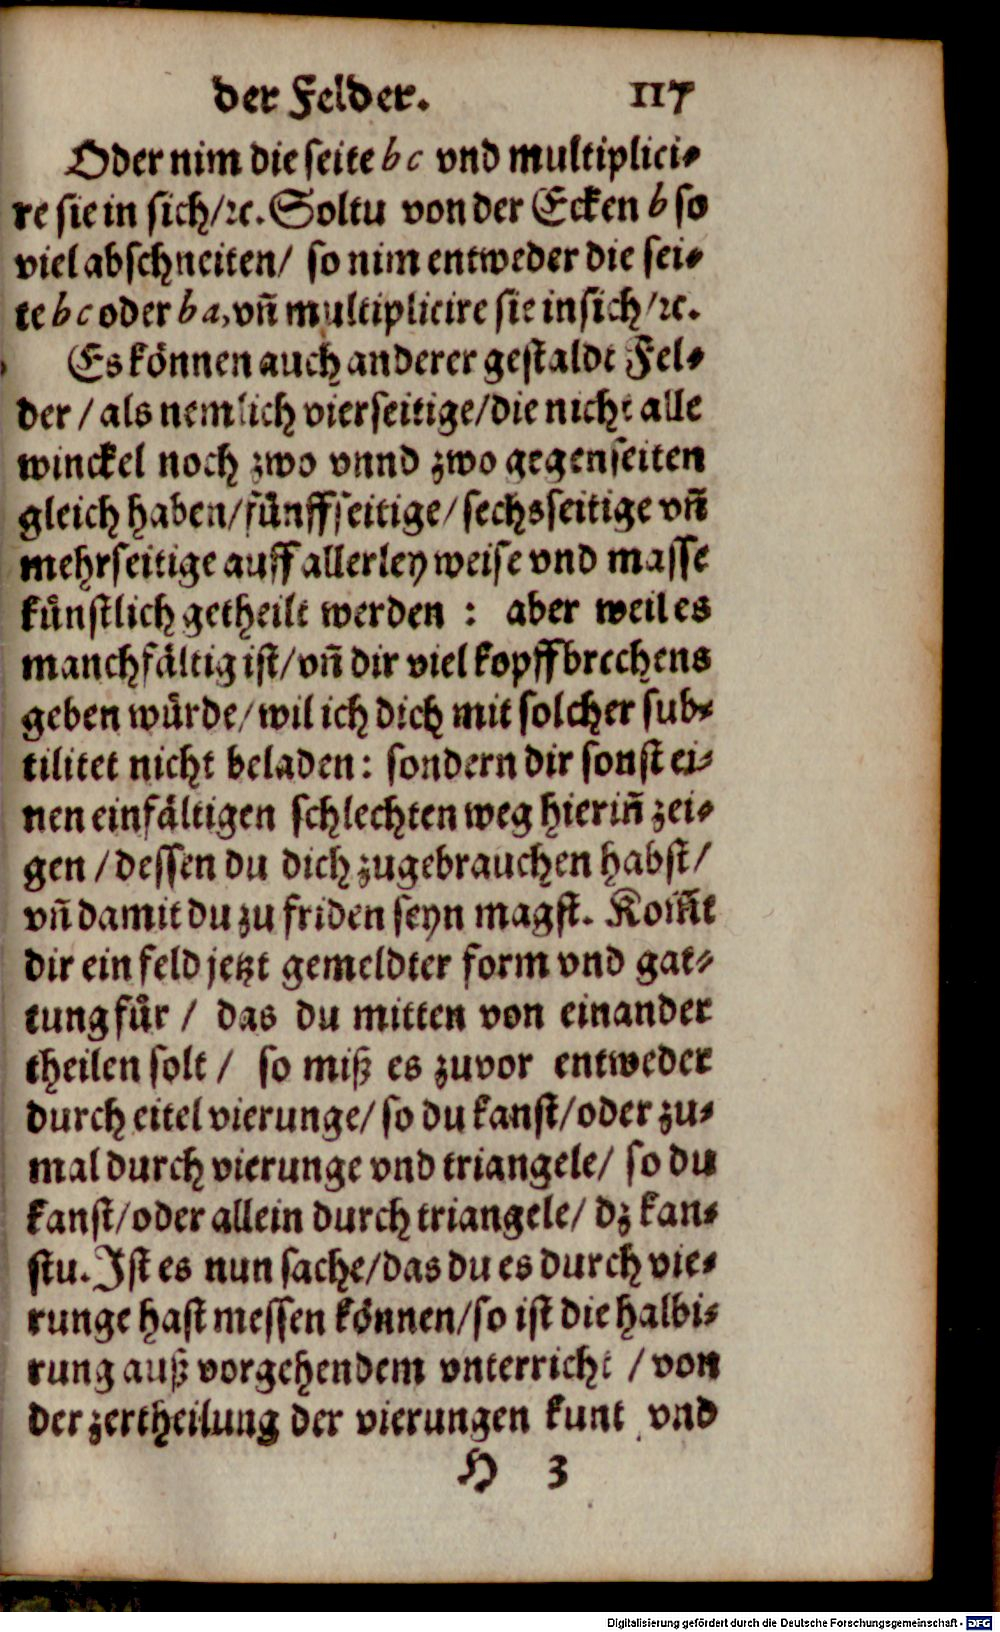 der Felder. 117
Oder nim die seite b c vnd multiplici⸗
re sie in sich/ꝛc. Soltu von der Ecken b so
viel abschneiten/ so nim entweder die sei⸗
te b c oder b a, vñ multiplicire sie in sich/ꝛc.
Es können auch anderer gestaldt Fel⸗
der / als nemlich vierseitige/die nicht alle
winckel noch zwo vnnd zwo gegenseiten
gleich haben/fünffseitige/ sechsseitige vñ
mehrseitige auff allerley weise vnd masse
künstlich getheilt werden : aber weil es
manchfältig ist/vñ dir viel kopffbrechens
geben würde/wil ich dich mit solcher sub⸗
tilitet nicht beladen: sondern dir sonst ei⸗
nen einfältigen schlechten weg hieriñ zei⸗
gen / dessen du dich zugebrauchen habst/
vñ damit du zu friden seyn magst. Kom̃t
dir ein feld jetzt gemeldter form vnd gat⸗
tung für / das du mitten von einander
theilen solt / so miß es zuvor entweder
durch eitel vierunge/ so du kanst/oder zu⸗
mal durch vierunge vnd triangele/ so du
kanst/oder allein durch triangele/ dz kan⸗
stu. Ist es nun sache/das du es durch vie⸗
runge hast messen können/so ist die halbi⸗
rung auß vorgehendem vnterricht / von
der zertheilung der vierungen kunt vnd
H 3
Digitalisierung gefördert durch die Deutsche Forschungsgemeinschaft - DFG